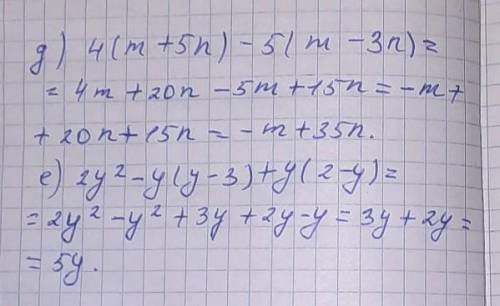 д) 4(m+5n)-5(m-3n)=
=4m+20n-5m+15n=-m+
+20n+15n=-m+35n.
е) 2y²-y(y-3)+y(2-y)=
=2y²-y²+3y+2y-y=3y+2y=
=5y.